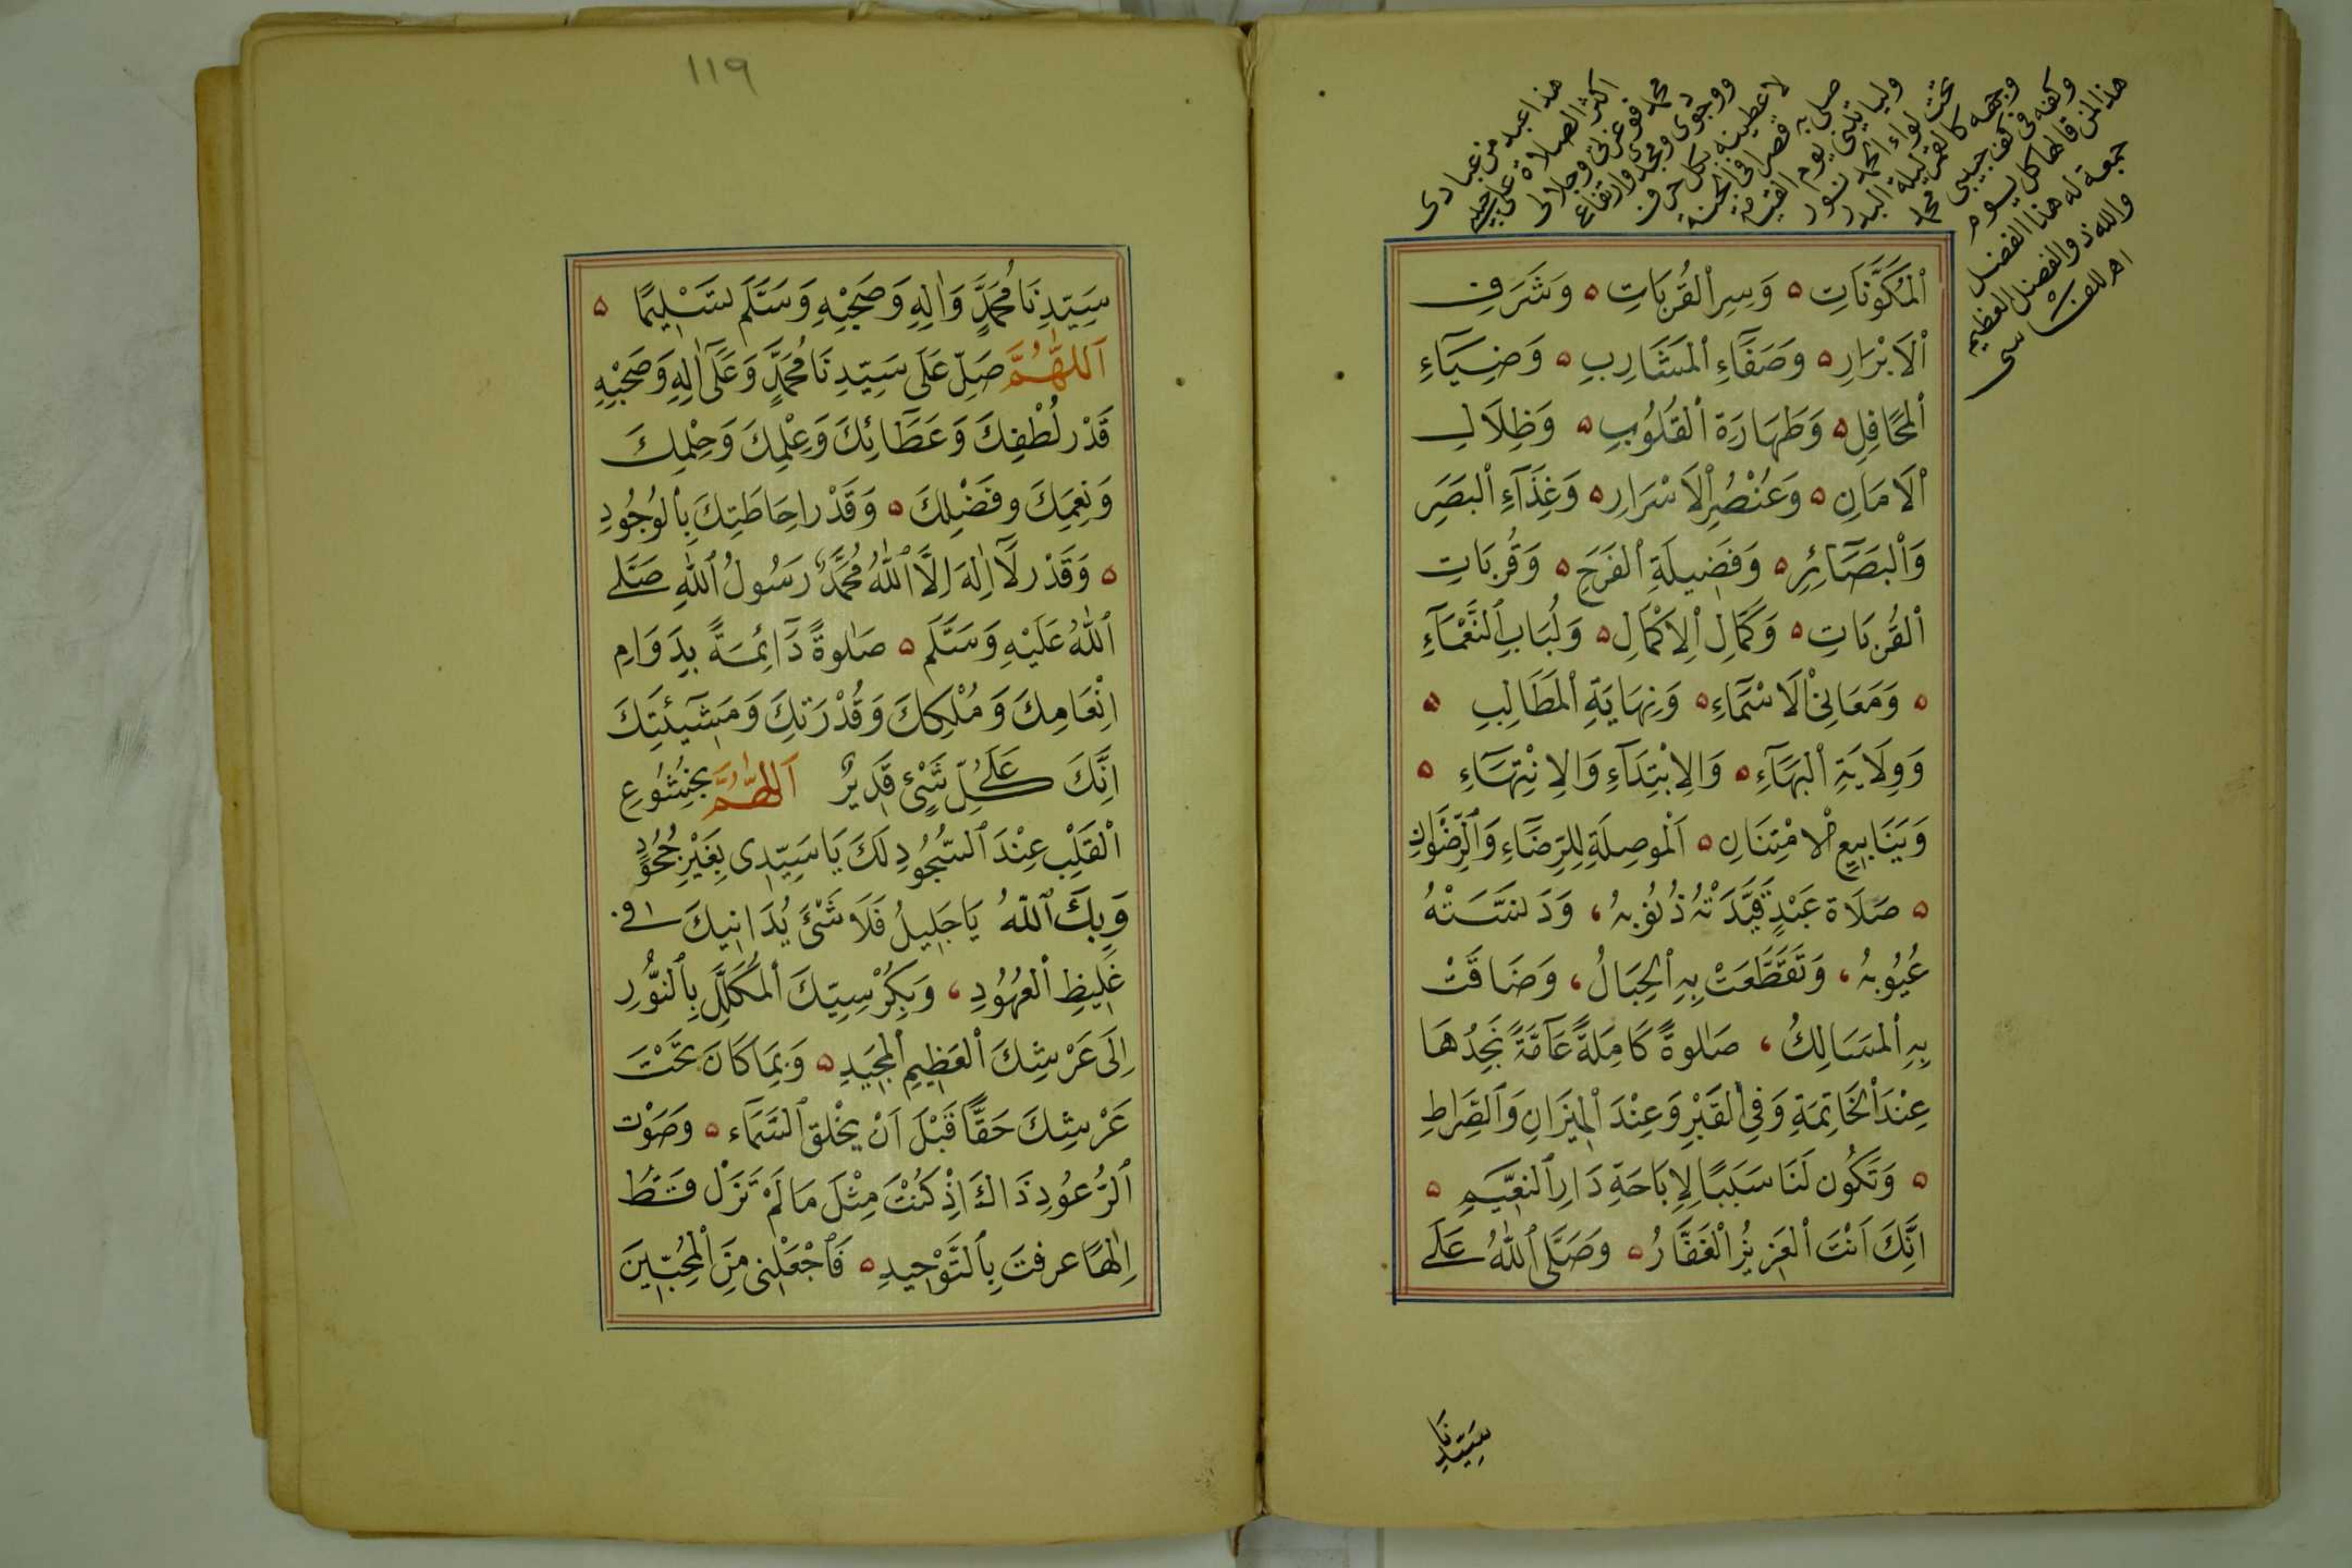 هذا عبد من عبادى
اكثر الصلاة على حبيبى
محمد فوعزتى وجلالى
ووجودى ومجدى وارتفاعى
لاعطينه بكل حرف
صلى به قصرا فى الجنة
ولياتينى يوم القيامة
تحت لواء الحمد نور
وجهه كالقمر ليلة البدر
وكفه فى كف حبيبى محمد
هذا لمن قالها كل يوم
جمعة له هذا الفضل
والله ذو الفضل العظيم
اهـ للفاسى
ٱلْمُكَوَّنَاتِ ۵ وَسِرِّ ٱلْقُرُبَاتِ ۵ وَشَرَفِ
ٱلْاَبْرَارِ ۵ وَصَفَآءِ ٱلْمَشَارِبِ ۵ وَضِيَآءِ
ٱلْمَحَافِلِ ۵ وَطَهَارَةِ ٱلْقُلُوبِ ۵ وَظِلَالِ
ٱلْاَمَانِ ۵ وَعُنْصُرِ ٱلْاَسْرَارِ ۵ وَغِذَآءِ ٱلْبَصَرِ
وَٱلْبَصَآئِرِ ۵ وَفَضِيلَةِ ٱلْفَرَحِ ۵ وَقُرُبَاتِ
ٱلْقُرُبَاتِ ۵ وَكَمَالِ ٱلْاِكْمَالِ ۵ وَلُبَابِ ٱلنَّعْمَآءِ
۵ وَمَعَانِى ٱلْاَسْمَآءِ ۵ وَنِهَايَةِ ٱلْمَطَالِبِ ۵
وَوِلَايَةِ ٱلْبَهَآءِ ۵ وَالِابْتِدَآءِ وَالِانْتِهَآءِ ۵
وَيَنَابِيعِ ٱلْامْتِنَانِ ۵ اَلْمُوصِلَةِ لِلرِّضَآءِ وَٱلرِّضْوَانِ
۵ صَلَاةَ عَبْدٍ قَيَّدَتْهُ ذُنُوبُهُ ، وَدَنَّسَتْهُ
عُيُوبُهُ ، وَتَقَطَّعَتْ بِهِ ٱلْحِبَالُ ، وَضَاقَتْ
بِهِ ٱلْمَسَالِكُ ، صَلٰوةً كَامِلَةً عَآمَّةً نَجِدُهَا
عِنْدَ ٱلْخَاتِمَةِ وَفِى ٱلْقَبْرِ وَعِنْدَ ٱلْمِيزَانِ وَٱلصِّرَاطِ
۵ وَتَكُون لَنَا سَبَبًا لِاِبَاحَةِ دَارِ ٱلنَّعِيمِ ۵
اِنَّكَ اَنْتَ ٱلْعَزِيزُ ٱلْغَفَّارُ ۵ وَصَلَّى ٱللّٰهُ عَلَى
سَيِّدِنَا
١١٩
سَيِّدِنَا مُحَمَّدٍ وَاٰلِهِ وَصَحْبِهِ وَسَلَّمَ تَسْلِيمًا ۵
اَللّٰهُمَّ صَلِّ عَلَى سَيِّدِنَا مُحَمَّدٍ وَعَلَى اٰلِهِ وَصَحْبِهِ
قَدْرَ لُطْفِكَ وَعَطَآئِكَ وَعِلْمِكَ وَحِلْمِكَ
وَنِعَمِكَ وفَضْلِكَ ۵ وَقَدْرَ اِحَاطَتِكَ بِٱلْوُجُودِ
۵ وَقَدْرَ لَآ اِلٰهَ اِلَّا ٱللّٰهُ مُحَمَّدٌ رَسُولُ ٱللّٰهِ صَلَّى
ٱللّٰهُ عَلَيْهِ وَسَلَّمَ ۵ صَلٰوةً دَآئِمَةً بِدَوَامِ
اِنْعَامِكَ وَمُلْكِكَ وَقُدْرَتِكَ وَمَشِيْئَتِكَ
اِنَّكَ عَلَى كُلِّ شَىْءٍ قَدِيرٌ اَللّٰهُمَّ بِخُشُوعِ
ٱلْقَلْبِ عِنْدَ ٱلسُّجُودِ لَكَ يَا سَيِّدِى بِغَيْرِ جُحُودٍ
وَبِكَ ٱللّٰهُ يَا جَلِيلُ فَلَا شَىْءَ يُدَانِيكَ فى
غَلِيظِ ٱلْعُهُودِ ، وَبِكُرْسِيِّكَ ٱلْمُكَلَّلِ بِٱلنُّورِ
اِلَى عَرْشِكَ ٱلْعَظِيمِ ٱلْمَجِيدِ ۵ وَبِمَا كَانَ تَحْتَ
عَرْشِكَ حَقًّا قَبْلَ اَنْ يخْلق ٱلسَّمَاء ۵ وَصَوْت
ٱلرُّعُودِ ذَاكَ اِذْ كُنْتَ مِثْلَ مَا لَمْ تَزَلْ قَطُّ
اِلٰهًا عرفت بِٱلتَّوْحِيدِ ۵ فَٱجْعَلْنِى مِنَ ٱلْمُحِبِّينَ